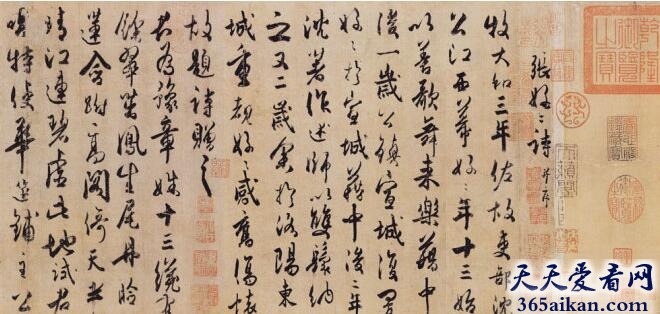 乾隆御覽之寶
張好〻詩 并序
牧大和三年佐故吏部沈
公江西幕好〻年十三始
以善歌舞來樂籍中
後一歲公鎮宣城復置
好〻於宣城籍中後二年
沈著作述師以雙鬟納
之又二歲余於洛陽東
城重覩好〻感舊傷懷
故題詩贈之
君為豫章姝十三纔有
餘翠茁鳳生尾丹臉
蓮含跗高閣倚天半
晴江連碧虛此地試君
唱特使華筵鋪主公
天天爱看网
365aikan.com